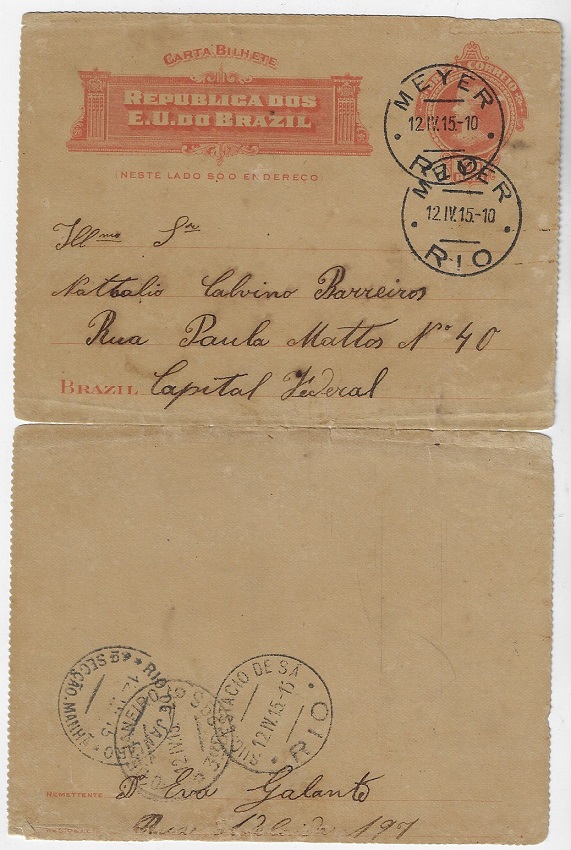 CARTA BILHETE
REPUBLICA DOS
E. U. DO BRAZIL
(NESTE LADO SÓ O ENDEREÇO)
CORREIO
MEYER
12.IV.15.-10
RIO
MEYER
12.IV.15.-10
RIO
Illmo Sr
Nathalio Calvino Barreiros
Rua Paula Mattos No 40
BRAZIL Capital Federal
SECÇÃO. MANHÃ
RIO DE JANEIRO
ESTACIO DE SÁ
12.IV.15.-15
RIO
REMETTENTE Da Eva Galante
Rua 197